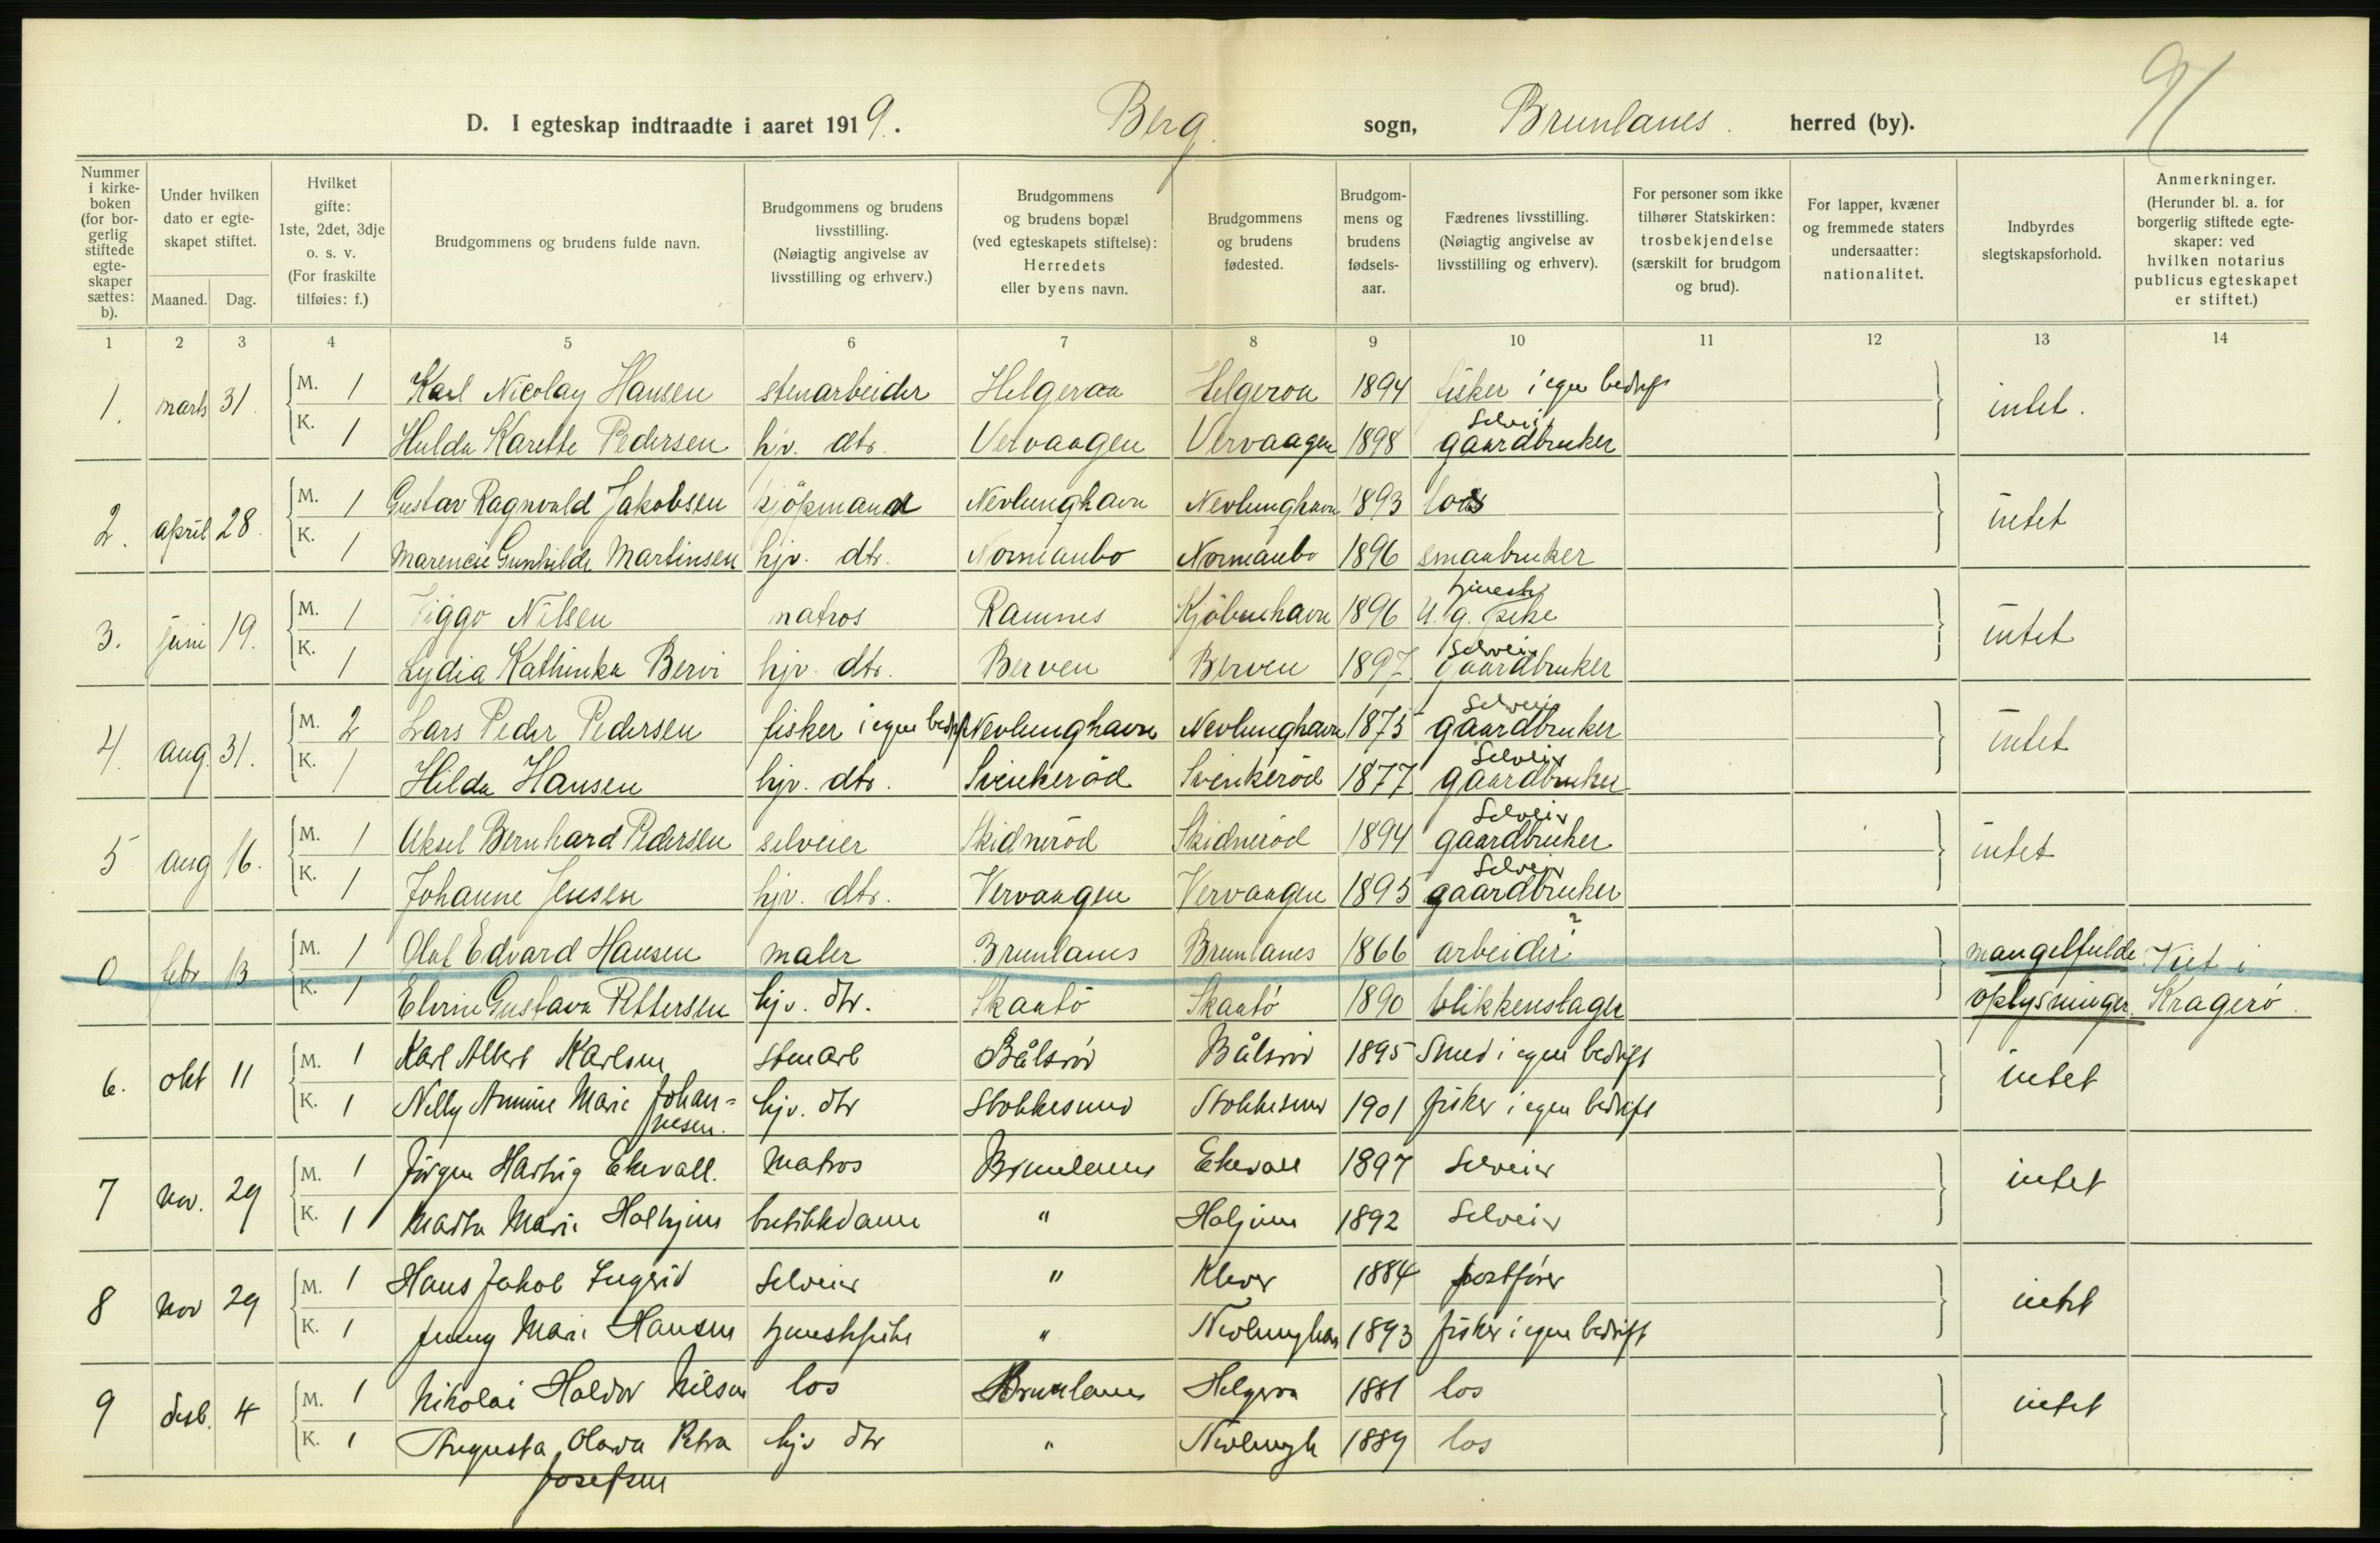 91
D. I egteskap indtraadte i aaret 1919. Berg. sogn, Brunlanes. herred (by).
Nummer i kirkeboken (for borgerlig stiftede egteskaper sættes: b).
Under hvilken dato er egteskapet stiftet.
Maaned. Dag.
Hvilket gifte: 1ste, 2det, 3dje o. s. v. (For fraskilte tilføies: f.)
Brudgommens og brudens fulde navn.
Brudgommens og brudens livsstilling. (Nøiagtig angivelse av livsstilling og erhverv.)
Brudgommens og brudens bopæl (ved egteskapets stiftelse): Herredets eller byens navn.
Brudgommens og brudens fødested.
Brudgommens og brudens fødselsaar.
Fædrenes livsstilling. (Nøiagtig angivelse av livsstilling og erhverv).
For personer som ikke tilhører Statskirken: trosbekjendelse (særskilt for brudgom og brud).
For lapper, kvæner og fremmede staters undersaatter: nationalitet.
Indbyrdes slegtskapsforhold.
Anmerkninger. (Herunder bl. a. for borgerlig stiftede egteskaper: ved hvilken notarius publicus egteskapet er stiftet.)
1 2 3 4 5 6 7 8 9 10 11 12 13 14
1. marts 31. M. 1 Karl Nicolay Hansen stenarbeider Helgeroa Helgeroa 1894 fisker i egen bedrift intet.
K. 1 Hulda Karette Pedersen hjv. dtr. Vervaagen Vervaagen 1898 Selvei gaardbruker
2. april 28. M. 1 Gustav Ragnvald Jakobsen kjöpmand Nevlunghavn Nevlunghavn 1893 lods intet
K. 1 Marencie Gunhilde Martinsen hjv. dtr. Normanbo Normanbo 1896 smaabruker
3. juni 19. M. 1 Viggo Nilsen matros Ramnes Kjöbenhavn 1896 U. g. tjeneste pike intet
K. 1 Lydia Kathinka Bervi hjv. dtr. Berven Berven 1897 Selveir gaardbruker
4. aug. 31. M. 2 Lars Peder Pedersen fisker i egen bedrift Nevlunghavn Nevlunghavn 1875 Selveir gaardbruker intet
K. 1 Hilda Hansen hjv. dtr. Sveikeröd Sveikeröd 1877 Selveir gaardbruker
5 aug 16. M. 1 Aksel Bernhard Pedersen selveier Skidneröd Skidneröd 1894 Selveir gaardbruker intet
K. 1 Johanne Jensen hjv. dtr. Vervaagen Vervaagen 1895 Selveir gaardbruker
0 febr. 13 M. 1 Olaf Edvard Hansen maler Brunlanes Brunlanes 1866 arbeider? mangelfulde Viet i
K. 1 Elvine Gustava Pettersen hjv. dtr. Skaatö Skaatö 1890 blikkenslager oplysninger. Kragerö.
6. okt 11 M. 1 Karl Albert Karlsen stenarb Bålsrød Bålsrød 1895 Smed i egen bedrift intet
K. 1 Nelly Ammine Marie Johan= hjv. dtr Stokkesund Stokkesund 1901 fisker i egen bedrift
nesen.
7 nov. 29 M. 1 Jörgen Hartvig Ekevall. Matros Brunlanes Ekevall 1897 Selveier intet
K. 1 Martha Marie Holhjem butikkdame " Holjem 1892 Selveier
8 nov 29 M. 1 Hans Jakob Sugerid Selveier " Klever 1884 postfører intet
K. 1 Jenny Marie Hansen tjenestepike " Nevlunghavn 1893 fisker i egen bedrift
9 desb. 4 M. 1 Nikolai Haldor Nilsen los Brunlanes Helgeroa 1881 los intet
K. 1 Augusta Olava Petra hjv dtr " Nevlungh 1889 los
Josefsen